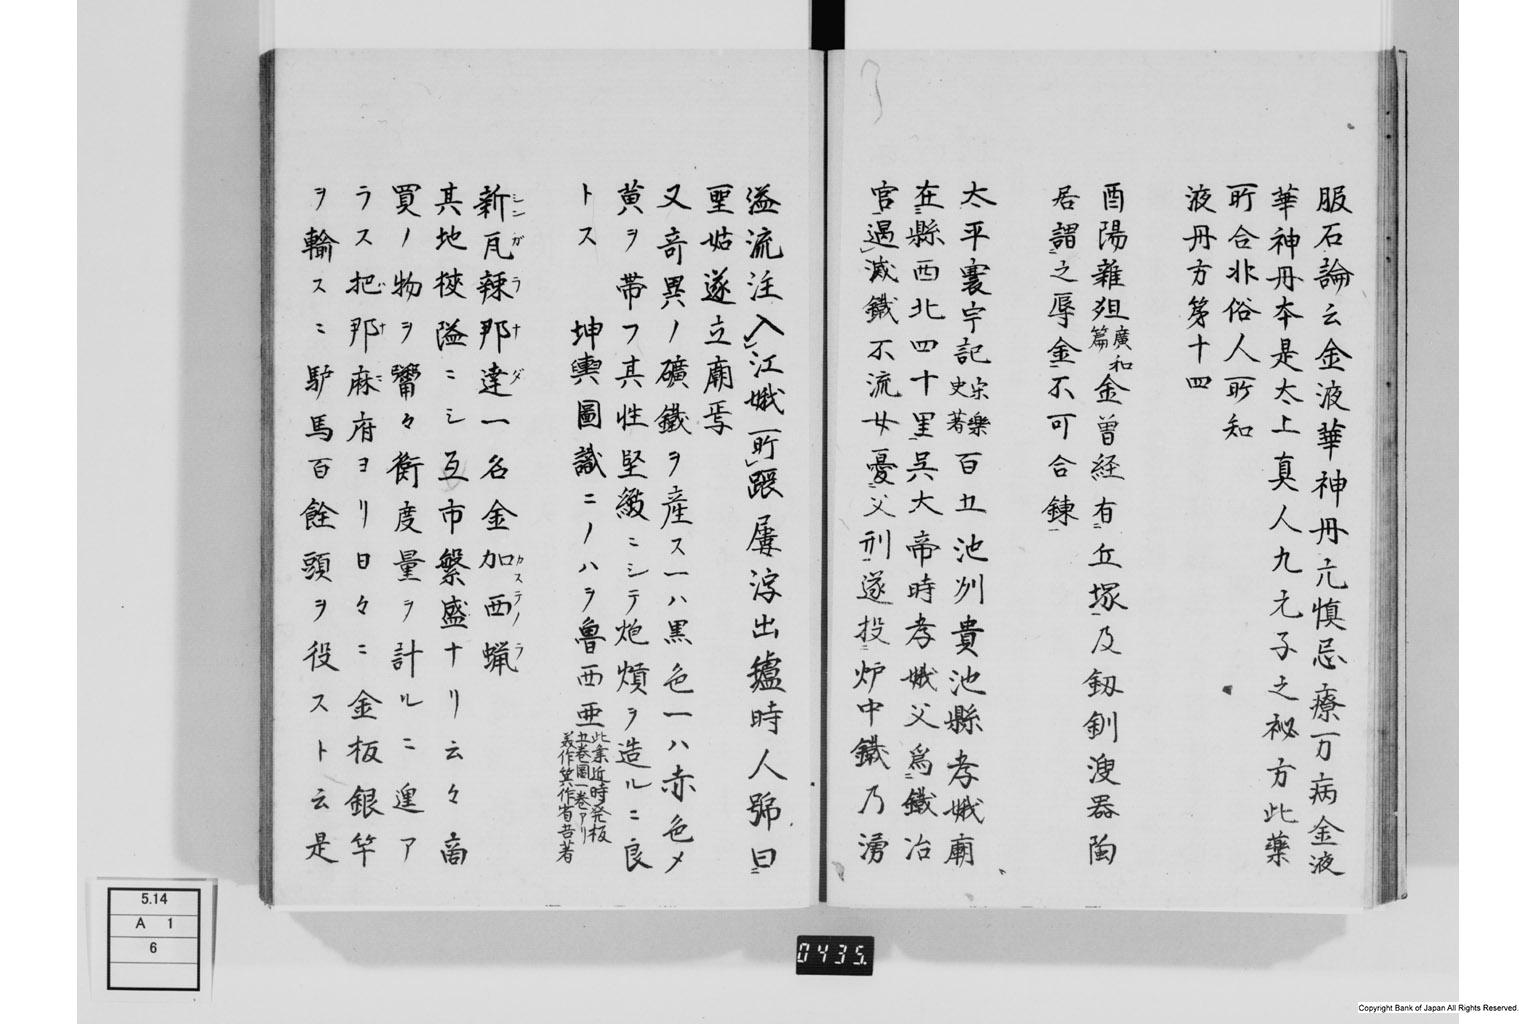 服石論云金液華神丹亢慎忌療万病金液
華神丹本是太上真人九元子之祕方此藥
所合非俗人所知
液丹方第十四
酉陽雜俎廣和篇金曾経有丘塚及釼釧溲器陶
居謂之辱金不可合錬
太平寰宇記宋樂史著百五池州貴池縣孝娥廟
在縣西北四十里呉大帝時孝娥父爲鐵冶
官遇滅鐵不流女憂父刑遂投炉中鐵乃湧
溢流注入江娥所躧屢浮出鑪時人號曰
聖姑遂立廟焉
又奇異ノ礦鐵ヲ産ス一ハ黒色一ハ赤色〆
黄ヲ帯フ其性堅緻ニシテ炮熕ヲ造ルニ良
トス 坤輿圖識ニノハヲ魯西亜此彙近時発板五巻圖一巻アリ美作箕作省吾著
新瓦辣那達一名金加西蝋
シンガラナダ カステノラ
其地挾隘ニシ互市繁盛ナリ云々商
買ノ物ヲ鬻々衡度量ラ計ルニ遑ア
ラス把那麻府ヨリ日々ニ金板銀竿
バナ
ヲ輸スニ馿馬百餘頭ヲ役スト云是
5.14
A 1
6
0435.
Copyright Bank of Japan All Rights Reserved.